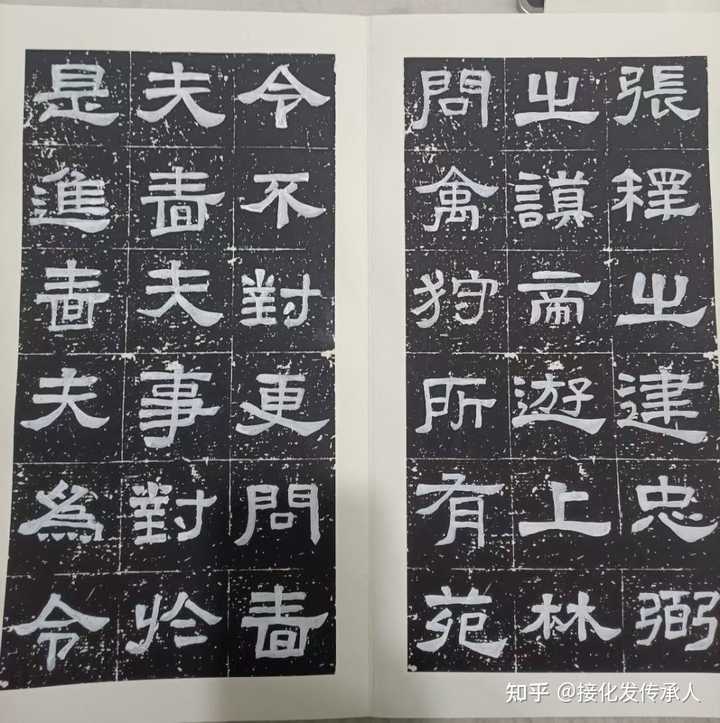 張釋之建忠弼
之謨帝遊上林
問禽狩所有苑
令不對更問嗇
夫嗇夫事對於
是進嗇夫為令
知乎 @接化发传承人